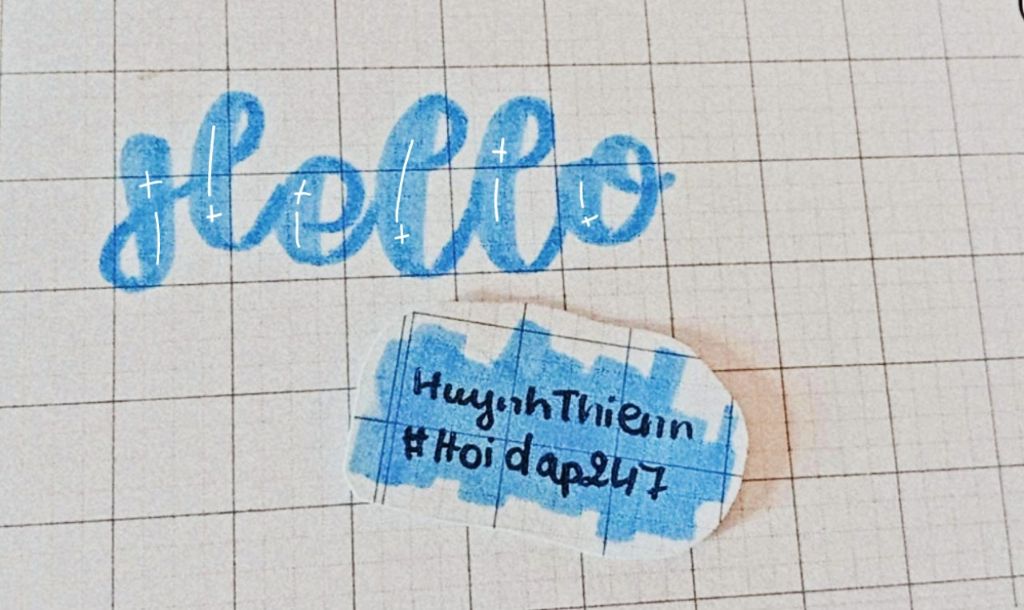 Hello
HuynhThienn
#Hoidap247